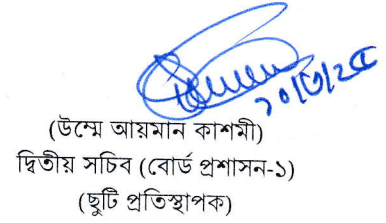 ২০/৩/২৫
(উম্মে আয়মান কাশমী)
দ্বিতীয় সচিব (বোর্ড প্রশাসন-১)
(ছুটি প্রতিস্থাপক)